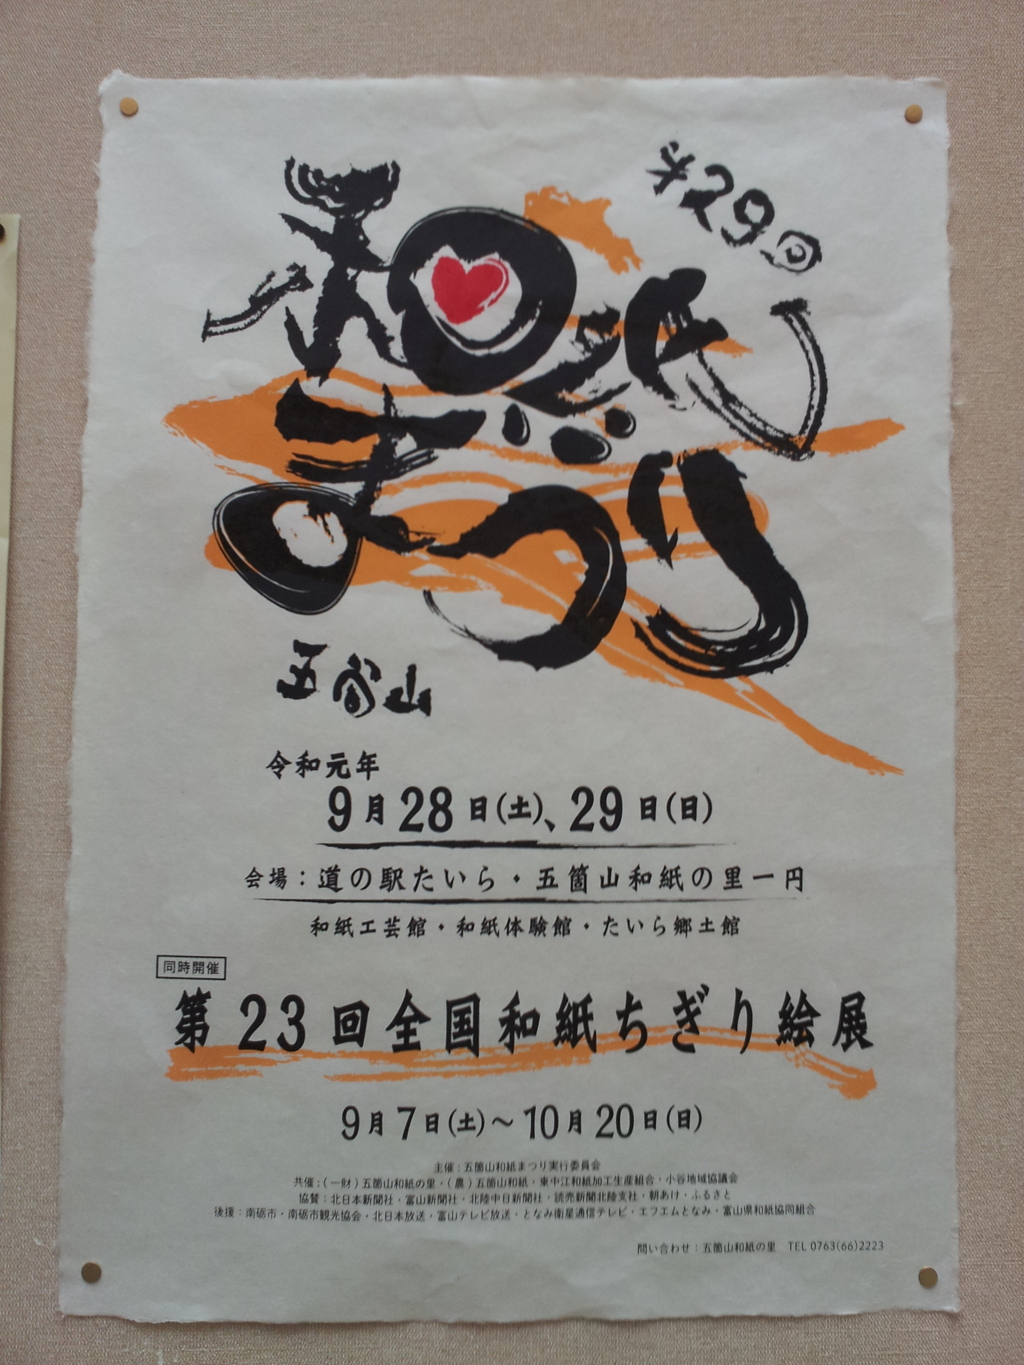 第29回
和紙
まつり
五箇山
令和元年
9月28日(土)、29日(日)
会場：道の駅たいら・五箇山和紙の里一円
和紙工芸館・和紙体験館・たいら郷土館
同時開催
第23回全国和紙ちぎり絵展
9月7日(土)～10月20日(日)
主催：五箇山和紙まつり実行委員会
共催：(一財)五箇山和紙の里・(農)五箇山和紙・東中江和紙加工生産組合・小谷地域協議会
協賛：北日本新聞社・富山新聞社・北陸中日新聞社・読売新聞北陸支社・朝あけ・ふるさと
後援：南砺市・南砺市観光協会・北日本放送・富山テレビ放送・となみ衛星通信テレビ・エフエムとなみ・富山県和紙協同組合
問い合わせ：五箇山和紙の里 TEL 0763(66)2223